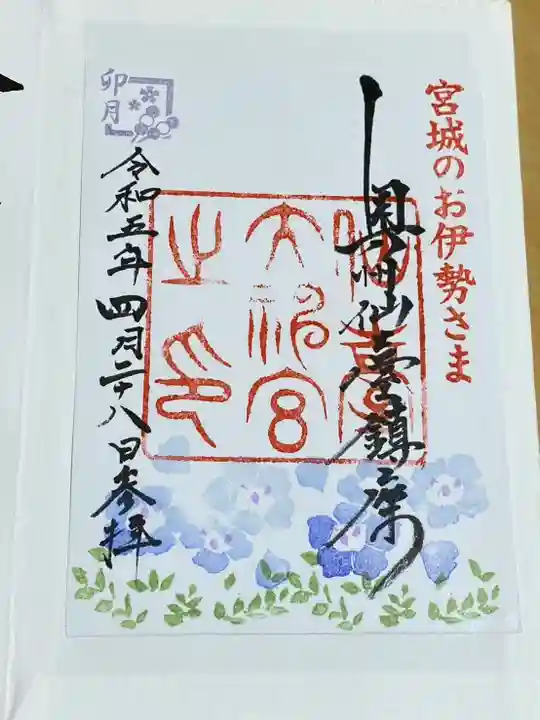 宮城のお伊勢さま
奥州仙臺鎮座
仙臺
大神宮
之印
卯月
令和五年四月二十八日参拝